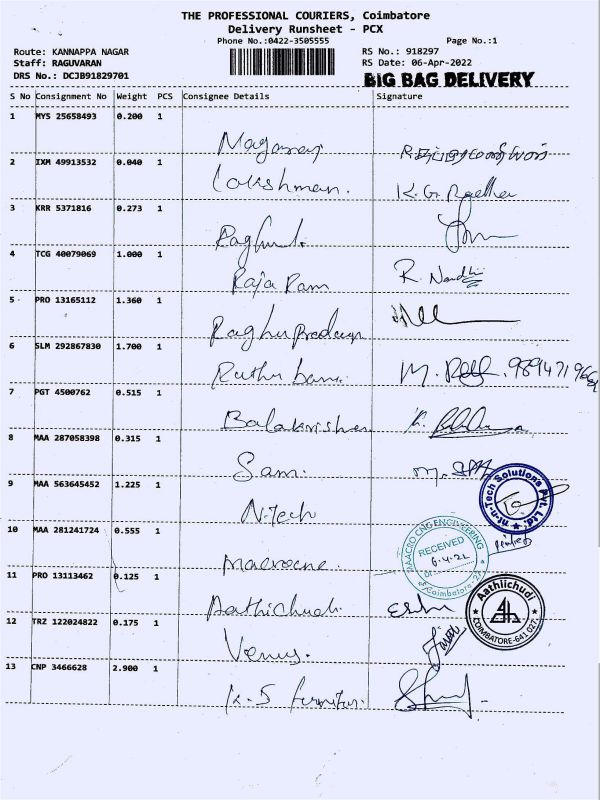 THE PROFESSIONAL COURIERS, Coimbatore
Delivery Runsheet - PCX
Phone No.:0422-3505555
Page No.:1
Route: KANNAPPA NAGAR
RS No.: 918297
Staff: RAGUVARAN
RS Date: 06-Apr-2022
DRS No.: DCJB91829701
BIG BAG DELIVERY
S No Consignment No Weight PCS Consignee Details Signature
1 MYS 25658493 0.200 1
2 IXM 49913532 0.040 1 Lakshman. K. G.
3 KRR 5371816 0.273 1
Raghu
4 TCG 40079069 1.000 1
Raja Ram R. Nandhi
5 PRO 13165112 1.360 1
Raghu
6 SLM 292867830 1.700 1
M.
7 PGT 4500762 0.515 1
Balakrishnan K.
8 MAA 287058398 0.315 1
Sam. M.
9 MAA 563645452 1.225 1
N.Tech
nt-n-Tech Solutions Pvt. Ltd.
10 MAA 281241724 0.555 1
MAACRO CNG ENGINEERING
RECEIVED
6.4.22
Coimbatore-22
11 PRO 13113462 0.125 1
Aathichudi
Aathiichudi
COIMBATORE-641 027.
12 TRZ 122024822 0.175 1
Venus.
13 CNP 3466628 2.900 1
K.S Furniture